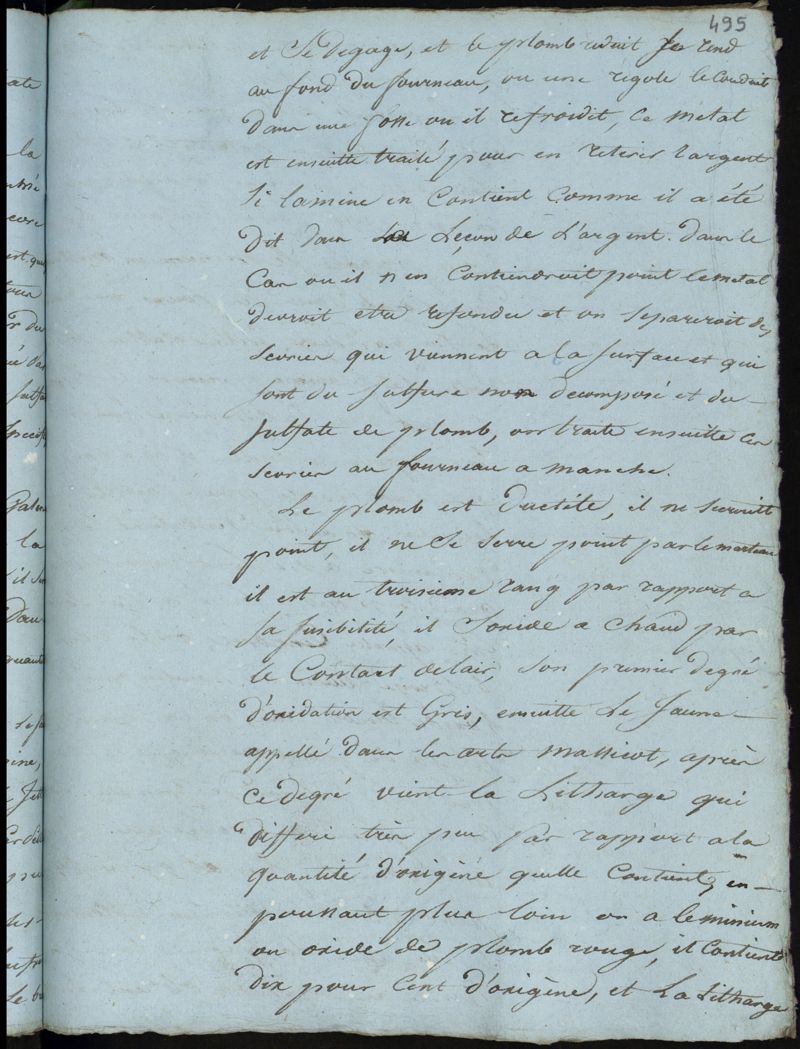 495
et Se degage, et le plomb reduit se rend
au fond du fourneau, ou une rigole le Conduit
dans une fosse ou il refroidit, Ce metal
est ensuitte traité pour en retirer l'argent
Si la mine en Contient Comme il a été
dit dans la Leçon de L'argent. dans le
Cas ou il n'en Contiendroit point le metal
devroit etre refondu et on Separeroit des
scories qui viennent a la surface et qui
sont du sulfure non decomposé et du
sulfate de plomb, on traite ensuitte ces
scories au fourneau a manche.
Le plomb est ductile, il ne s'ecrouit
point, il ne Se serre point par le marteau
il est au troisieme rang par rapport a
sa fusibilité, il S'oxide a chaud par
le Contact de l'air, Son premier degré
d'oxidation est Gris, ensuitte Le Jaune
appellé dans les arts Massicot, après
Ce degré vient la Litharge qui
differe très peu par rapport a la
quantité d'oxigène qu'elle Contient, en
poussant plus loin on a le minium
ou oxide de plomb rouge, il Contient
dix pour Cent d'oxigène, et La Litharge
ate
la
encore
est que
r du
sulfat
la
il Se
Dans
quand